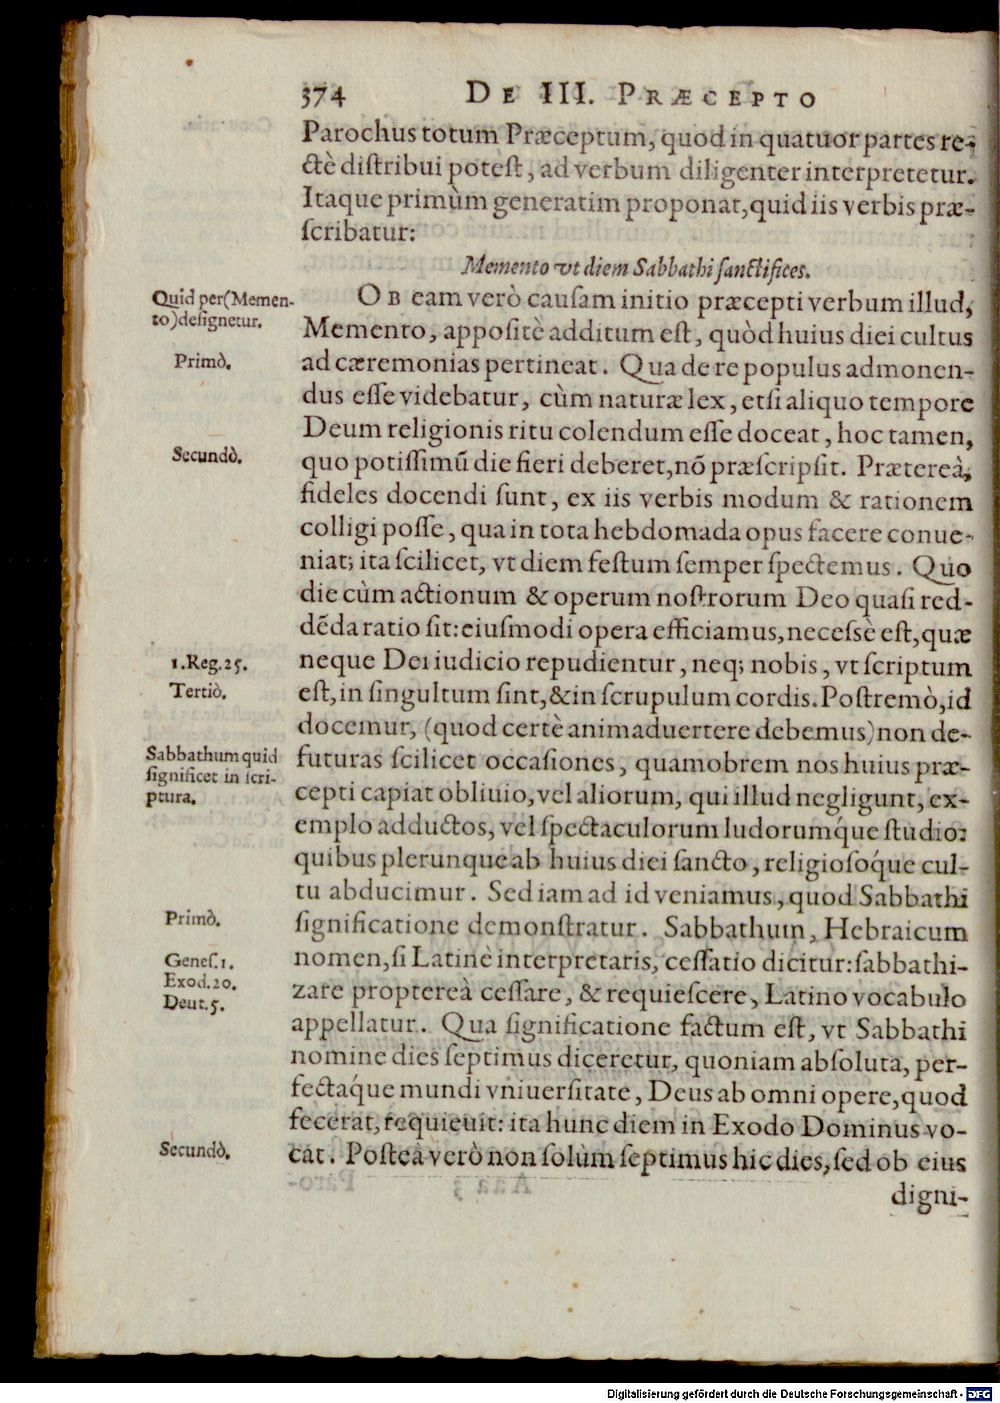 374 DE III. PRÆCEPTO
Parochus totum Præceptum, quod in quatuor partes re-
ctè distribui potest, ad verbum diligenter interpretetur.
Itaque primùm generatim proponat, quid iis verbis præ-
scribatur:
Memento vt diem Sabbathi sanctifices.
Quid per (Memen-
to) designetur.
OB eam verò causam initio præcepti verbum illud,
Memento, appositè additum est, quòd huius diei cultus
Primò.
ad cæremonias pertineat. Qua de re populus admonen-
dus esse videbatur, cùm naturæ lex, etsi aliquo tempore
Deum religionis ritu colendum esse doceat, hoc tamen,
Secundò.
quo potissimũ die fieri deberet, nõ præscripsit. Prætereà,
fideles docendi sunt, ex iis verbis modum & rationem
colligi posse, qua in tota hebdomada opus facere conue-
niat; ita scilicet, vt diem festum semper spectemus. Quo
die cùm actionum & operum nostrorum Deo quasi red-
dẽda ratio sit: eiusmodi opera efficiamus, necessè est, quæ
1. Reg. 25.
neque Dei iudicio repudientur, neq; nobis, vt scriptum
Tertiò.
est, in singultum sint, & in scrupulum cordis. Postremò, id
docemur, (quod certè animaduertere debemus) non de-
Sabbathum quid
significet in scri-
ptura.
futuras scilicet occasiones, quamobrem nos huius præ-
cepti capiat obliuio, vel aliorum, qui illud negligunt, ex-
emplo adductos, vel spectaculorum ludorumq́ue studio:
quibus plerunque ab huius diei sancto, religiosoq́ue cul-
tu abducimur. Sed iam ad id veniamus, quod Sabbathi
Primò.
significatione demonstratur. Sabbathum, Hebraicum
Genes. 1.
Exod. 20.
Deut. 5.
nomen, si Latinè interpretaris, cessatio dicitur: sabbathi-
zare propterea cessare, & requiescere, Latino vocabulo
appellatur. Qua significatione factum est, vt Sabbathi
nomine dies septimus diceretur, quoniam absoluta, per-
fectaq́ue mundi vniuersitate, Deus ab omni opere, quod
fecerat, requieuit: ita hunc diem in Exodo Dominus vo-
Secundò.
cat. Posteà verò non solùm septimus hic dies, sed ob eius
digni-
Digitalisierung gefördert durch die Deutsche Forschungsgemeinschaft - DFG